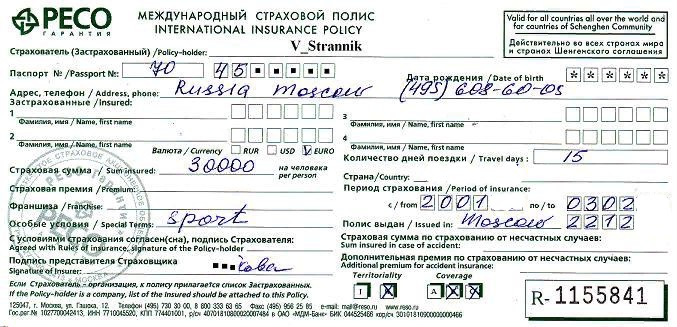 РЕСО ГАРАНТИЯ
МЕЖДУНАРОДНЫЙ СТРАХОВОЙ ПОЛИС
INTERNATIONAL INSURANCE POLICY
Valid for all countries all over the world and for countries of Schenghen Community
Действительно во всех странах мира и странах Шенгенского соглашения
Страхователь (Застрахованный) /Policy-holder: V_Strannik
Паспорт № /Passport №: 70 45
Дата рождения / Date of birth * * * * * *
Адрес, телефон / Address, phone: Russia Moscow (495) 608-60-05
Застрахованные / Insured:
1
Фамилия, имя / Name, first name
3
Фамилия, имя / Name, first name
2
Фамилия, имя / Name, first name
4
Фамилия, имя / Name, first name
Валюта / Currency RUR USD V EURO
Страховая сумма / Sum insured: 30000 на человека per person
Количество дней поездки / Travel days: 15
Страховая премия / Premium:
Страна/Country:
Франшиза / Franchise:
Период страхования / Period of insurance:
с / from 2001 по / to 0302
Особые условия / Special Terms: Sport
Полис выдан / Issued in: Moscow 2212
С условиями страхования согласен(сна), подпись Страхователя:
Agreed with Rules of insurance, signature of the Policy-holder:
Страховая сумма по страхованию от несчастных случаев:
Sum insured in case of accident:
Подпись представителя Страховщика
Signature of Insurer:
Дополнительная премия по страхованию от несчастных случаев:
Additional premium for accident insurance:
Territoriality Coverage
Если Страхователь - организация, к полису прилагается список Застрахованных.
If the Policy-holder is a company, list of the Insured should be attached to this Policy.
R- 1155841
125047, г. Москва, ул. Гашека, 12. Телефоны (495) 730 30 00, 8 800 333 63 65 Факс (495) 956 25 85 e-mail: mail@reso.ru www.reso.ru